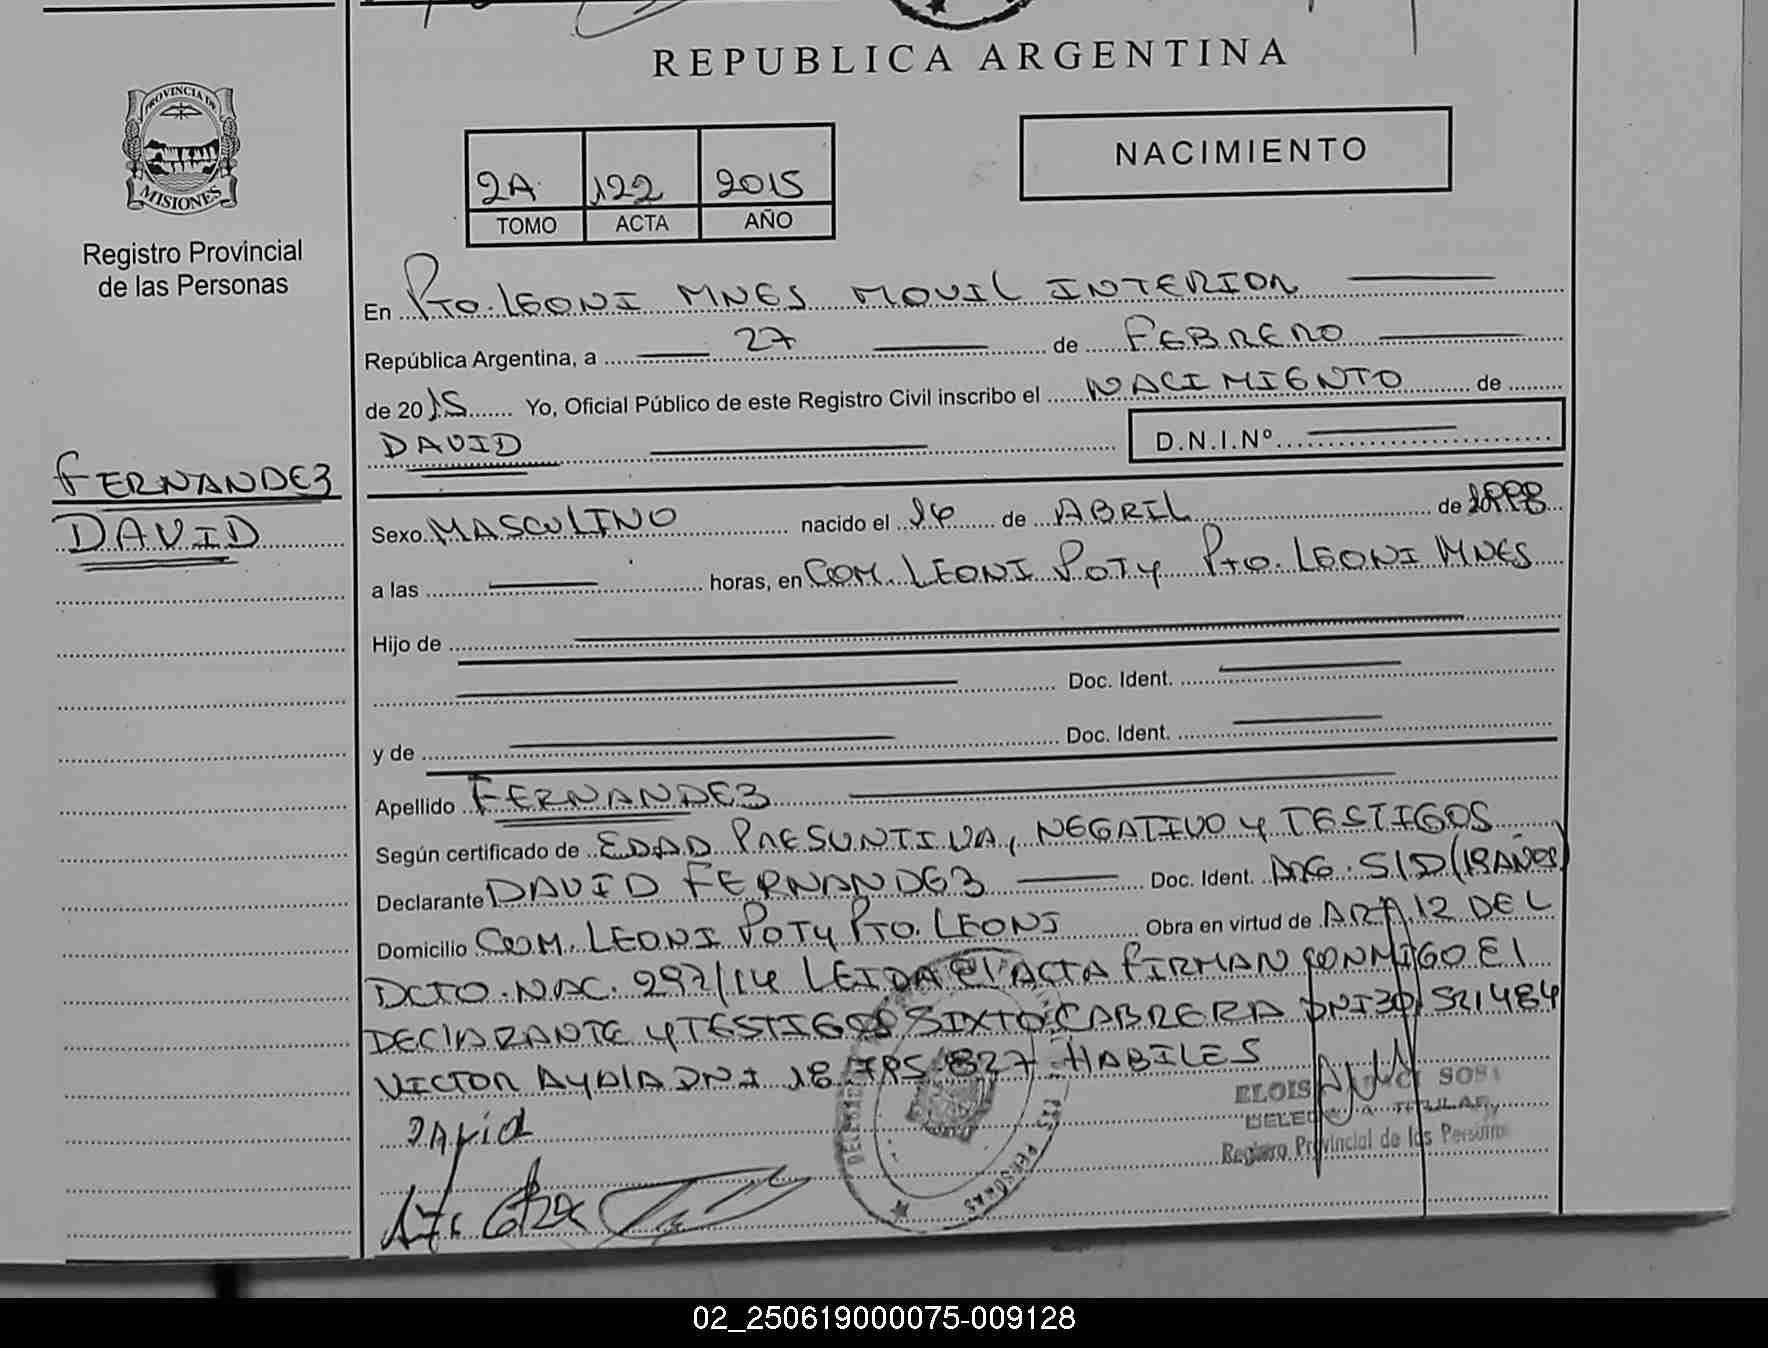 REPUBLICA ARGENTINA
PROVINCIA DE
MISIONES
Registro Provincial
de las Personas
NACIMIENTO
2A 122 2015
TOMO ACTA AÑO
En Pto. LEONI MNES MOVIL INTERIOR
República Argentina, a 27 de FEBRERO
de 2015 Yo, Oficial Público de este Registro Civil inscribo el NACIMIENTO de
DAVID D.N.I.Nº
FERNANDEZ
DAVID
Sexo MASCULINO nacido el de ABRIL de
a las horas, en COM. LEONI POTY Pto. LEONI MNES
Hijo de
Doc. Ident.
y de Doc. Ident.
Apellido FERNANDEZ
Según certificado de EDAD PRESUNTIVA, NEGATIVO y TESTIGOS
Declarante DAVID FERNANDEZ Doc. Ident. ARG. S/D
Domicilio COM. LEONI POTY PTO. LEONI Obra en virtud de ART 12 DEL
DCTO. NAC. LEIDA el ACTA FIRMAN CONMIGO El
DEClARANTE y TESTIGOS SIXTO CABRERA DNI 30 521484
VICTOR AYAlA DNI 18 827 HABILES
David
SOSA
TITULAR
Registro Provincial de las Personas
LAS PERSONAS
02_250619000075-009128